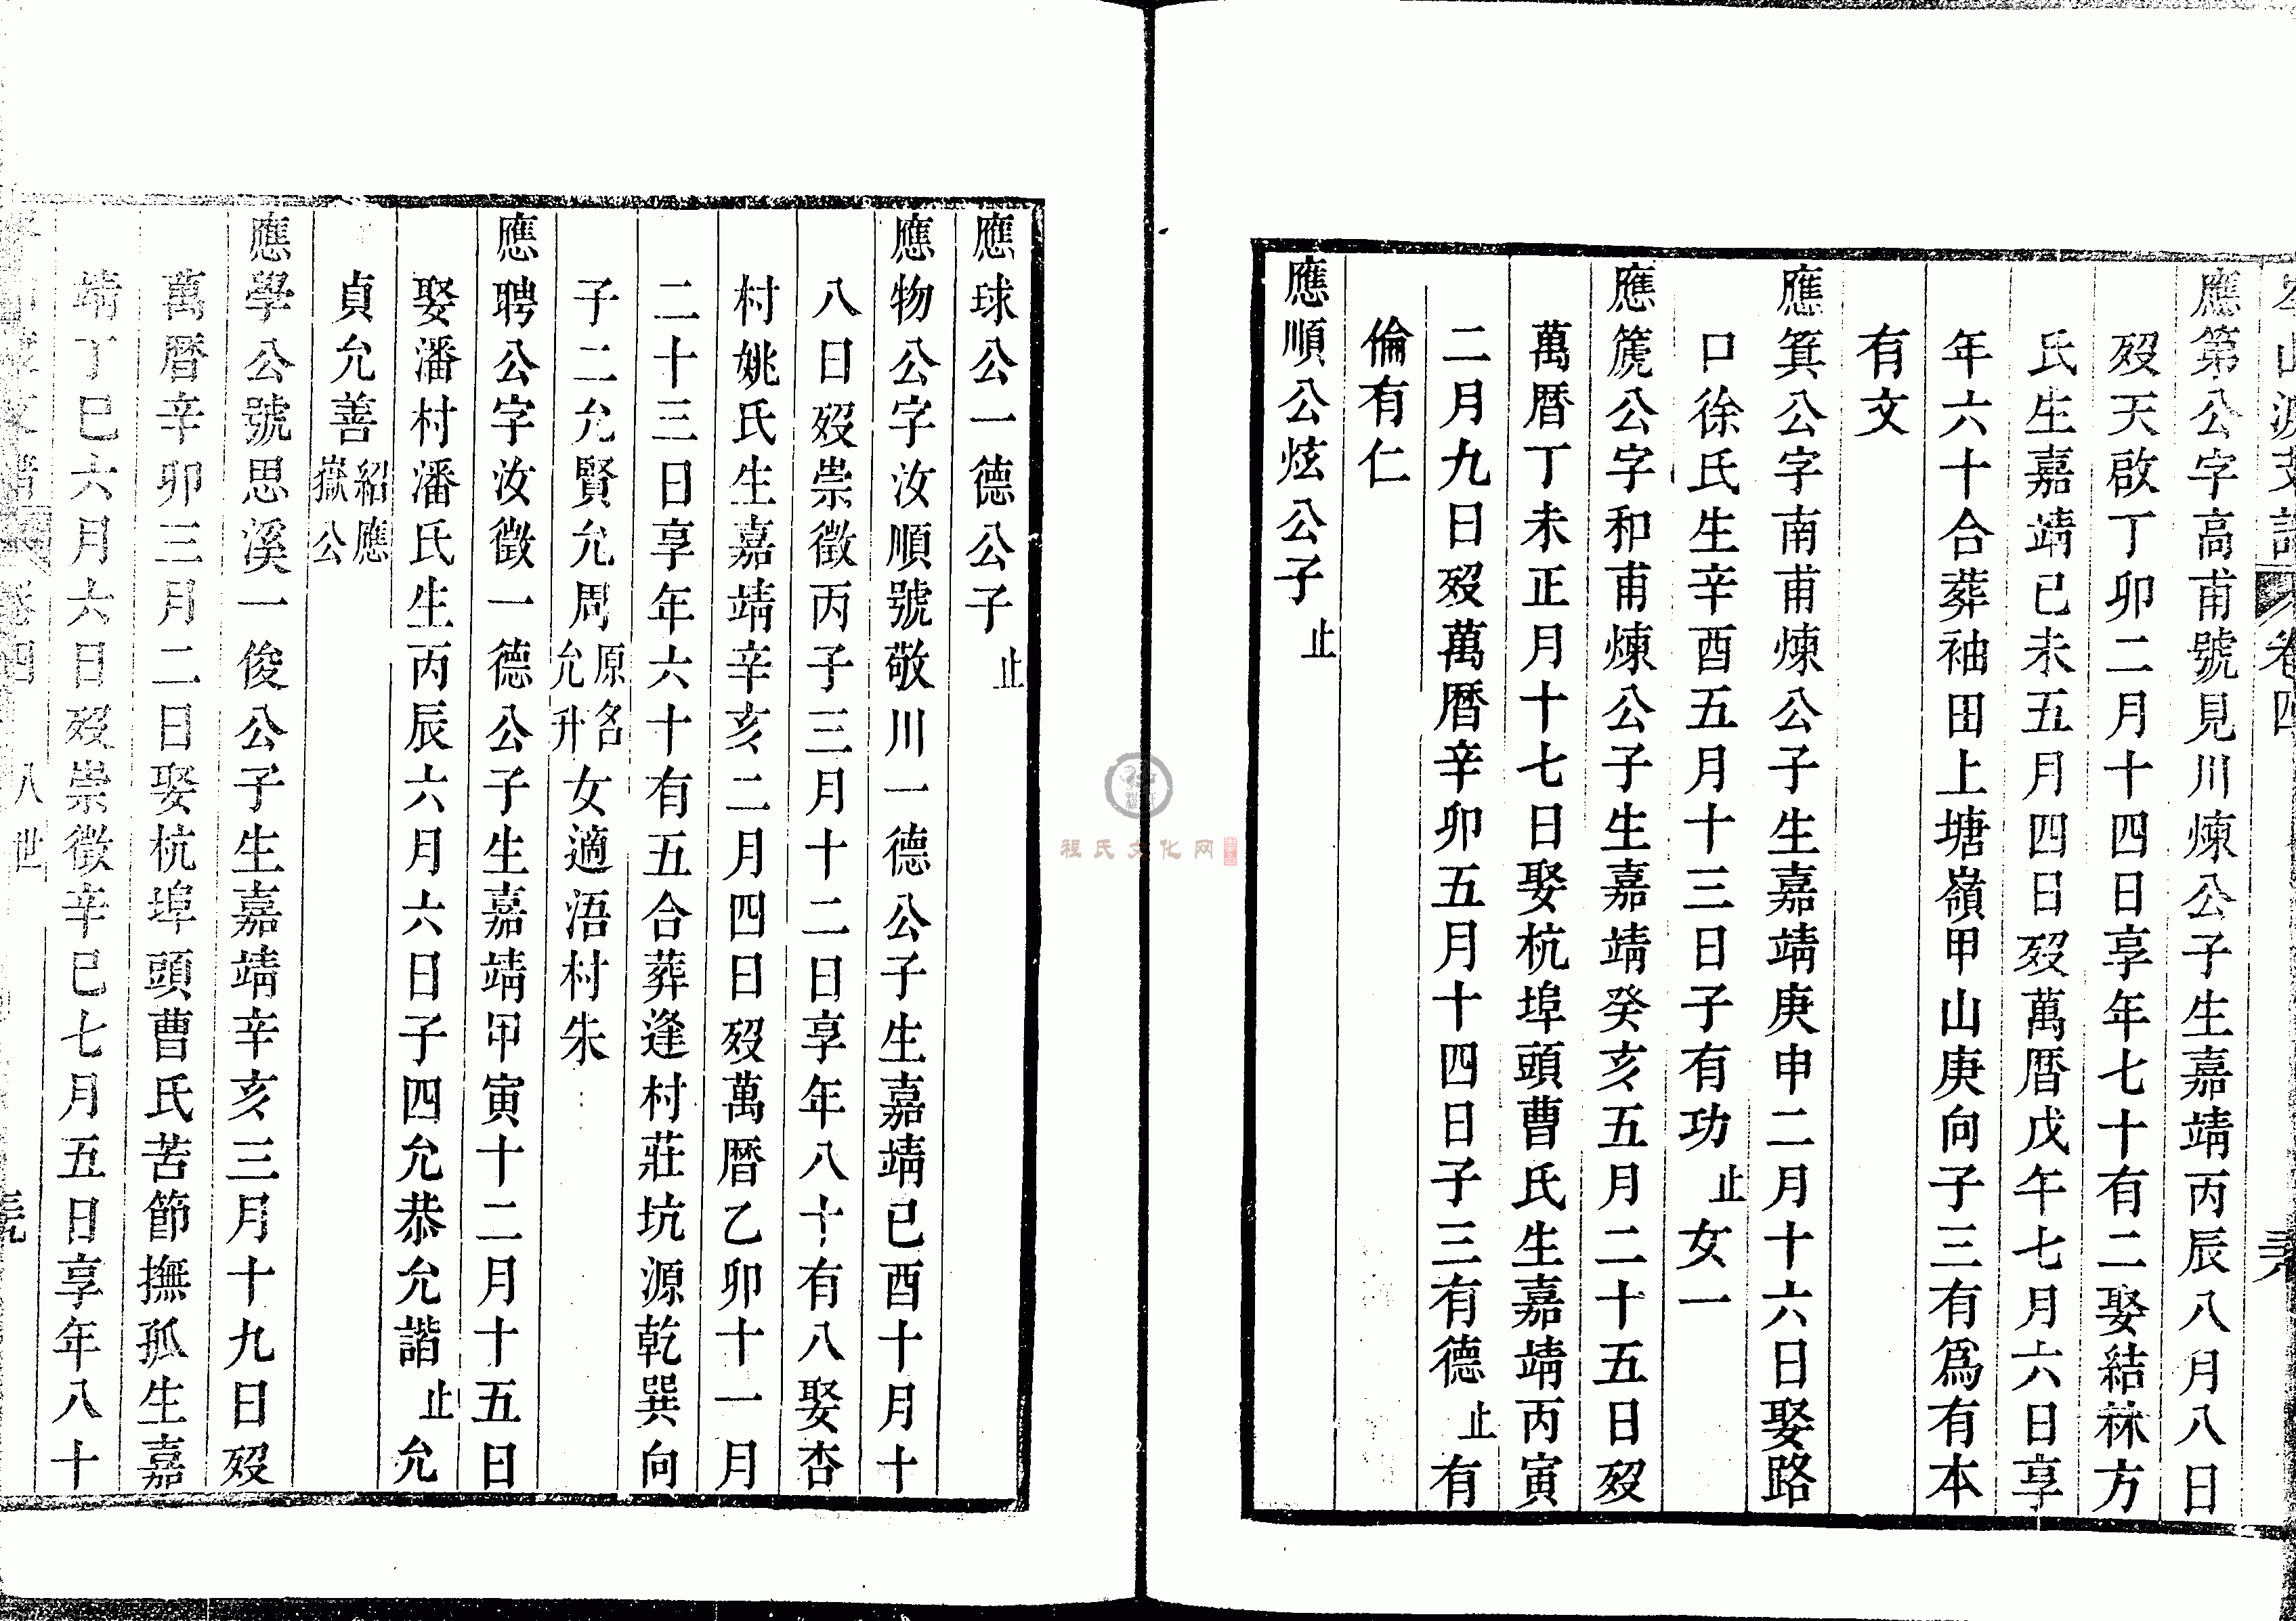 山源支譜 卷四
應第公字高甫號見川煉公子生嘉靖丙辰八月八日
歿天啟丁卯二月十四日享年七十有二娶結林方
氏生嘉靖已未五月四日歿萬曆戊午七月六日享
年六十合葬袖田上塘嶺甲山庚向子三有爲有本
有文
應箕公字南甫煉公子生嘉靖庚申二月十六日娶路
口徐氏生辛酉五月十三日子有功止女一
應箎公字和甫煉公子生嘉靖癸亥五月二十五日歿
萬曆丁未正月十七日娶杭埠頭曹氏生嘉靖丙寅
二月九日歿萬曆辛卯五月十四日子三有德止有
倫有仁
應順公炫公子止
應球公一德公子止
應物公字汝順號敬川一德公子生嘉靖已酉十月十
八日歿崇徵丙子三月十二日享年八十有八娶杏
村姚氏生嘉靖辛亥二月四日歿萬曆乙卯十一月
二十三日享年六十有五合葬逢村莊坑源乾巽向
子二允賢允周原名允升女適浯村朱
應聘公字汝徵一德公子生嘉靖甲寅十二月十五日
娶潘村潘氏生丙辰六月六日子四允恭允諧止允
貞允善紹應嶽公
應學公號思溪一俊公子生嘉靖辛亥三月十九日歿
萬曆辛卯三月二日娶杭埠頭曹氏苦節撫孤生嘉
靖丁巳六月六日歿崇徵辛巳七月五日享年八十
卷四 八世
程氏文化网